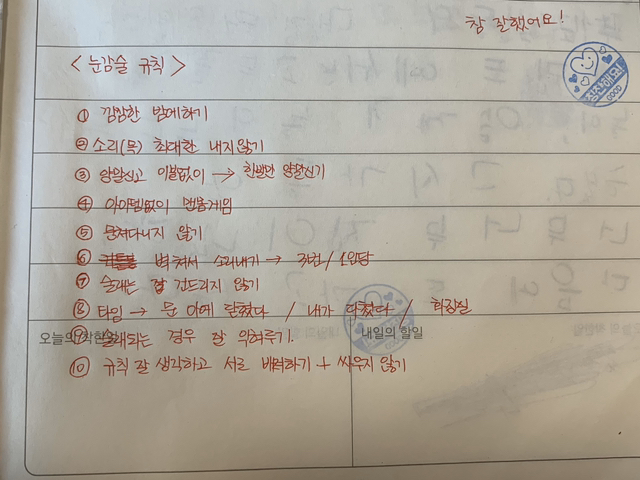 참 잘했어요!
<눈감술 규칙>
① 깜깜한 밤에하기
② 소리(목) 최대한 내지않기
③ 양말신고 이불없이 → 한발만 양말신기
④ 아이템없이 맨몸게임
⑤ 문쳐다니지 않기
⑥ 벽쳐서 소리내기 → 3번/1인당
⑦ 술래는 잘 건드리지 않기
⑧ 타임 → 문 아예 닫혔다 / 내가 다쳤다 / 화장실
오늘의 착한일 내일의 할일
⑨ 술래되는 경우 잘 위혀주기.
⑩ 규칙 잘 생각하고 서로 배려하기 + 싸우지 않기
칭찬해요!
GOOD